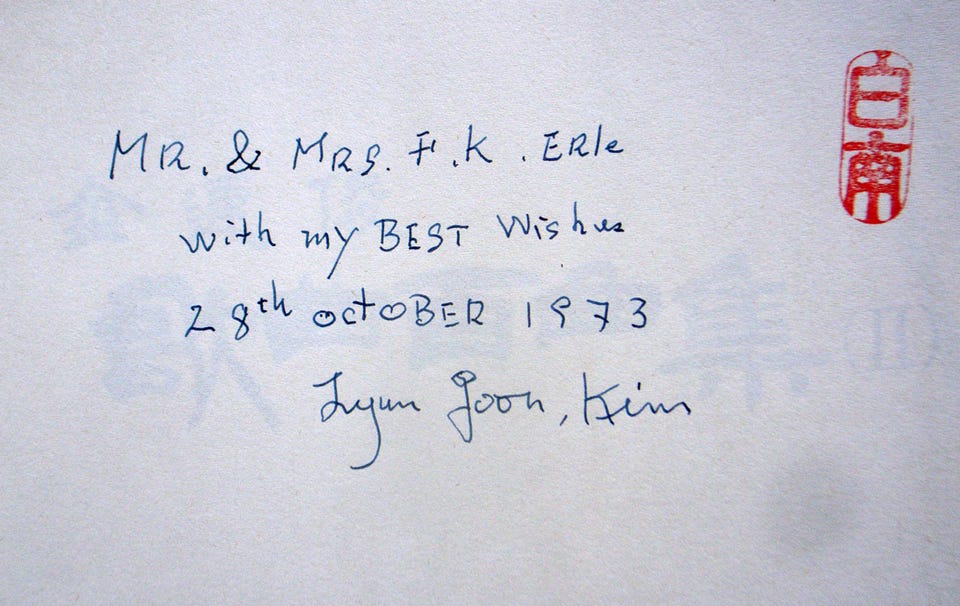 白南
MR. & MRS. F.K. ERle
with my BEST Wishes
28th octOBER 1973
Lyun Joon, Kim